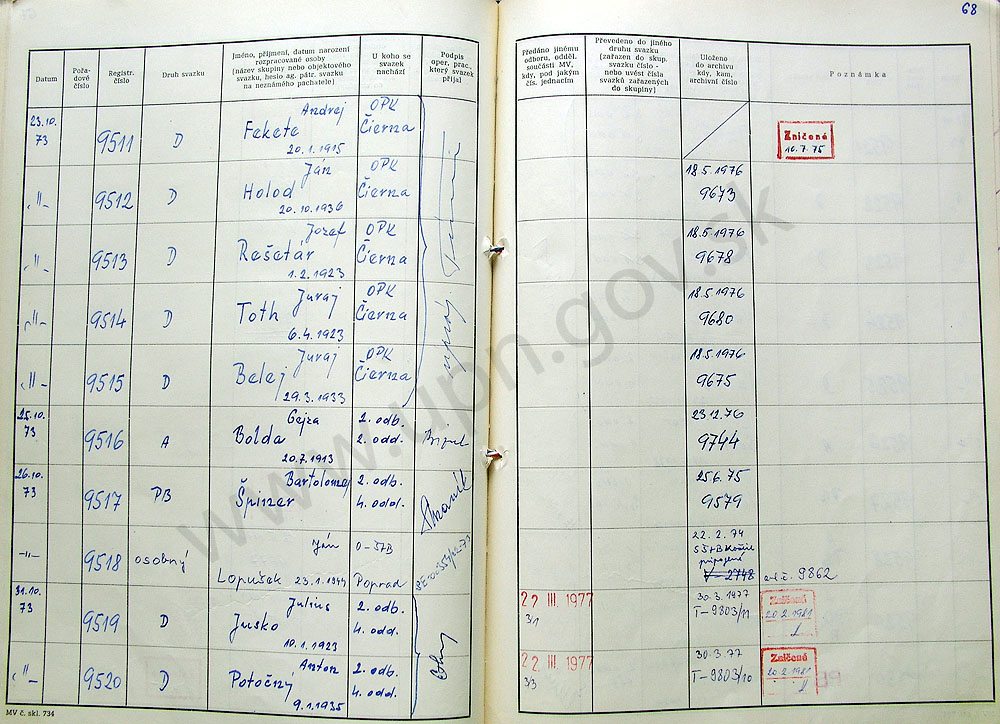 68
Datum
Pořa-
dové
číslo
Registr.
číslo
Druh svazku
Jméno, příjmení, datum narození
rozpracované osoby
(název skupiny nebo objektového
svazku, heslo ag. pátr. svazku
na neznámého pachatele)
U koho se
svazek
nachází
Podpis
oper. prac.,
který svazek
přijal
Předáno jinému
odboru, odděl.
součásti MV,
kdy, pod jakým
čís. jednacím
Převedeno do jiného
druhu svazku
(zařazen do skup.
svazku číslo -
nebo uvést čísla
svazků zařazených
do skupiny)
Uloženo
do archivu
kdy, kam,
archivní číslo
Poznámka
23.10.
73
9511
D
Andrej
Fekete
20.1.1915
OPK
Čierna
Zničené
10.7.75
-"-
9512
D
Ján
Holod
20.10.1936
OPK
Čierna
18.5.1976
9673
-"-
9513
D
Jozef
Rešetár
1.2.1923
OPK
Čierna
18.5.1976
9678
-"-
9514
D
Juraj
Toth
6.4.1923
OPK
Čierna
18.5.1976
9680
-"-
9515
D
Juraj
Belej
29.3.1933
OPK
Čierna
18.5.1976
9675
25.10.
73
9516
A
Gejza
Bolda
20.7.1913
2. odb.
2. odd.
23.12.76
9744
26.10.
73
9517
PB
Bartolomej
Špiner
2. odb.
4. odd.
25.6.75
9579
-"-
9518
osobný
Ján
Lopušek 23.1.1944
O-ŠTB
Poprad
22.2.74
pripojené
V-2748
9862
31.10.
73
9519
D
Július
Jusko
10.1.1923
2. odb.
4. odd.
22 III 1977
31
30.3.1977
T-9803/11
Zničené
20.2.1981
-"-
9520
D
Anton
Potočný
9.1.1935
2. odb.
4. odd.
22 III 1977
33
30.3.77
T-9803/10
Zničené
20.2.1981
MV č. skl. 734
www.upn.gov.sk